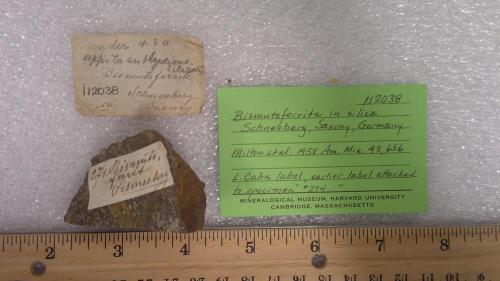 under 430
appr to anhydrous
Bismutoferrite
112038 Schneeberg
.50 Saxony
274. Bismuto
ferrit
Schneeberg
112038
Bismutoferrite in silica
Schneeberg, Saxony, Germany
Milton et al. 1958 Am. Min. 43, 656
L. Cahn label, earlier label attached
to specimen "#274..."
MINERALOGICAL MUSEUM, HARVARD UNIVERSITY
CAMBRIDGE, MASSACHUSETTS
2 3 4 5 6 7 8